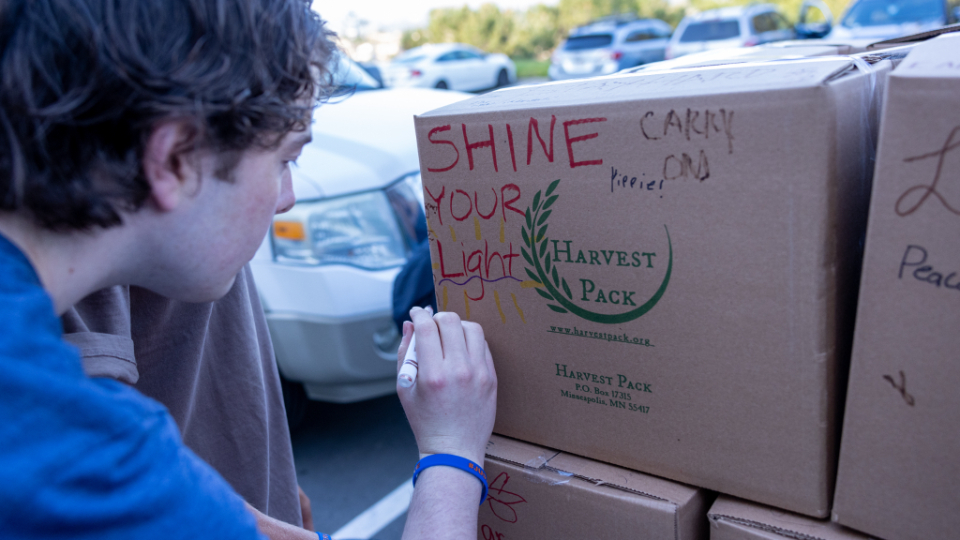 SHINE
YOUR
Light
CARRY
ON
Yippier
HARVEST
PACK
www.harvestpack.org
HARVEST PACK
P.O. Box 17315
Minneapolis, MN 55417
Peac